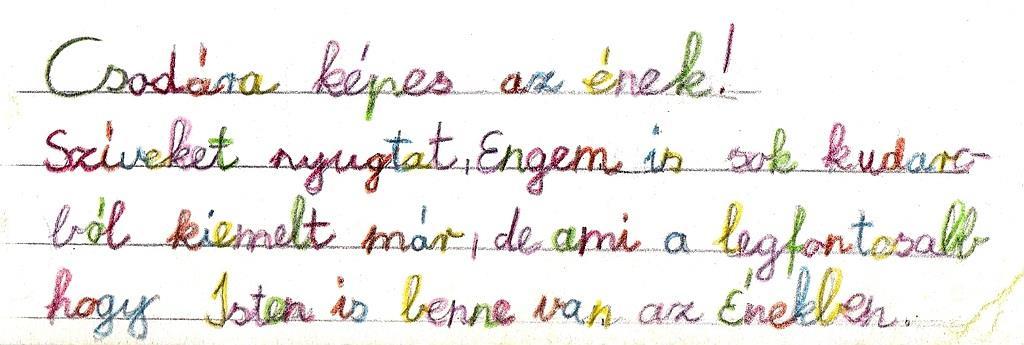 Csodára képes az ének!
Szíveket nyugtat, Engem is sok kudarc-
ból kiemelt már, de ami a legfontosabb
hogy Isten is benne van az Énekben.